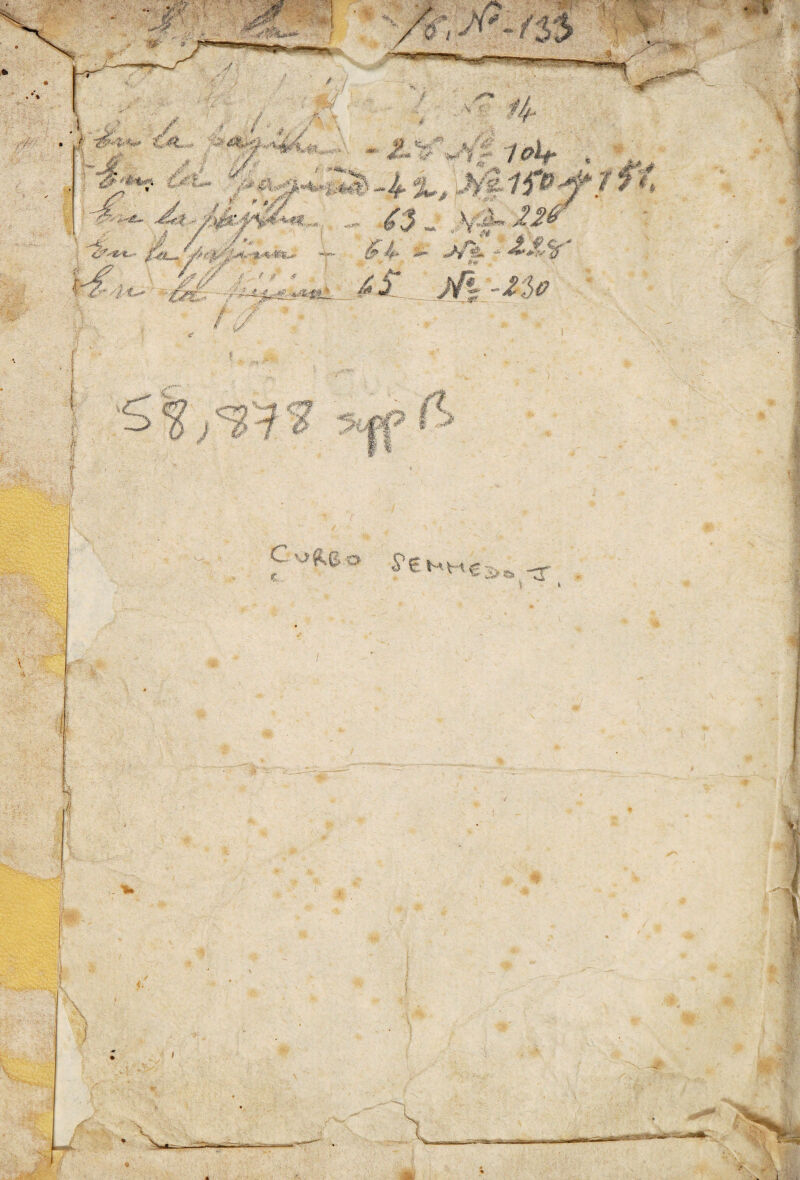 En la /6, Nº-133
Nº 14
En la pajina - 28 Nº 104
En la pajina - 42, Nº 150 y 151.
En la pajina - 63 - Nº 226
En la pajina - 64 - Nº - 228
En la pijina 65 Nº - 230
58,878 Supp B
CURBO SEMMEDO, J.